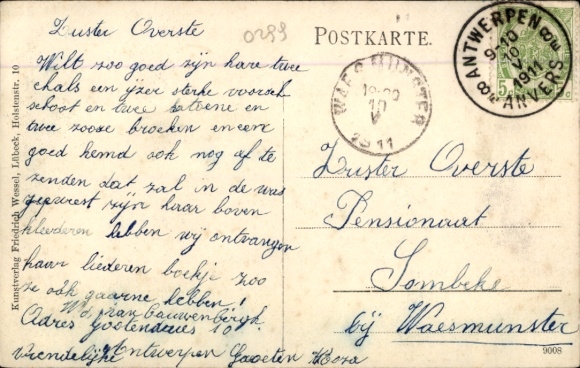 Zuster Overste
0299
POSTKARTE.
ANTWERPEN
9-10
10
V
1911
ANVERS
5
WAESMUNSTER
10
V
1911
Wilt zoo goed zijn hare twee
chals een ijzer sterke voorsch
schoot en twee katoene en
twee roose broeken en eene
goed hemd ook nog af te
zenden dat zal in de was
geperst zijn haar boven
kleederen hebben wij ontvangen
haar liederen boekje zoo
ze ook gaarne hebben!
Wd van Cauwenbergh
Adres 10
Vriendelijke Groeten Roza
Antwerpen
Zuster Overste
Pensionaat
Sombeke
bij Waesmunster
Kunstverlag Friedrich Wessel, Lübeck, Holstenstr. 10
9008